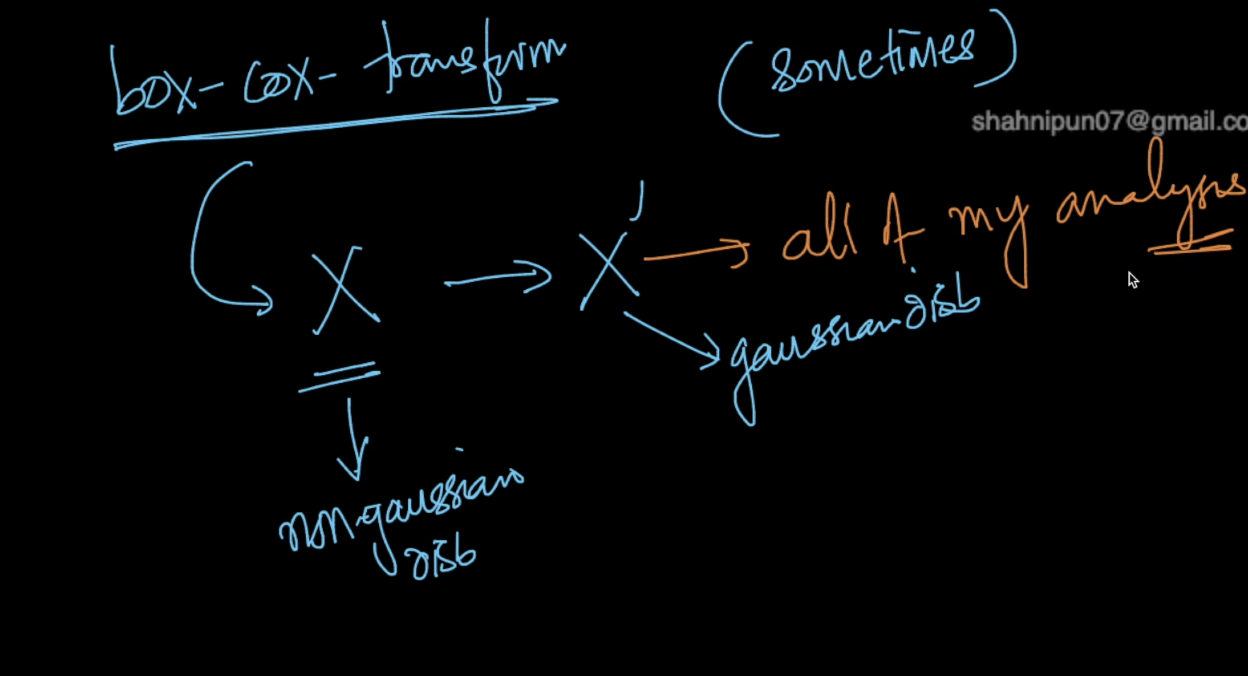 box-cox-transform
(sometimes)
shahnipun07@gmail.co
X → X' → all of my analysis
gaussian disb
non-gaussian
disb